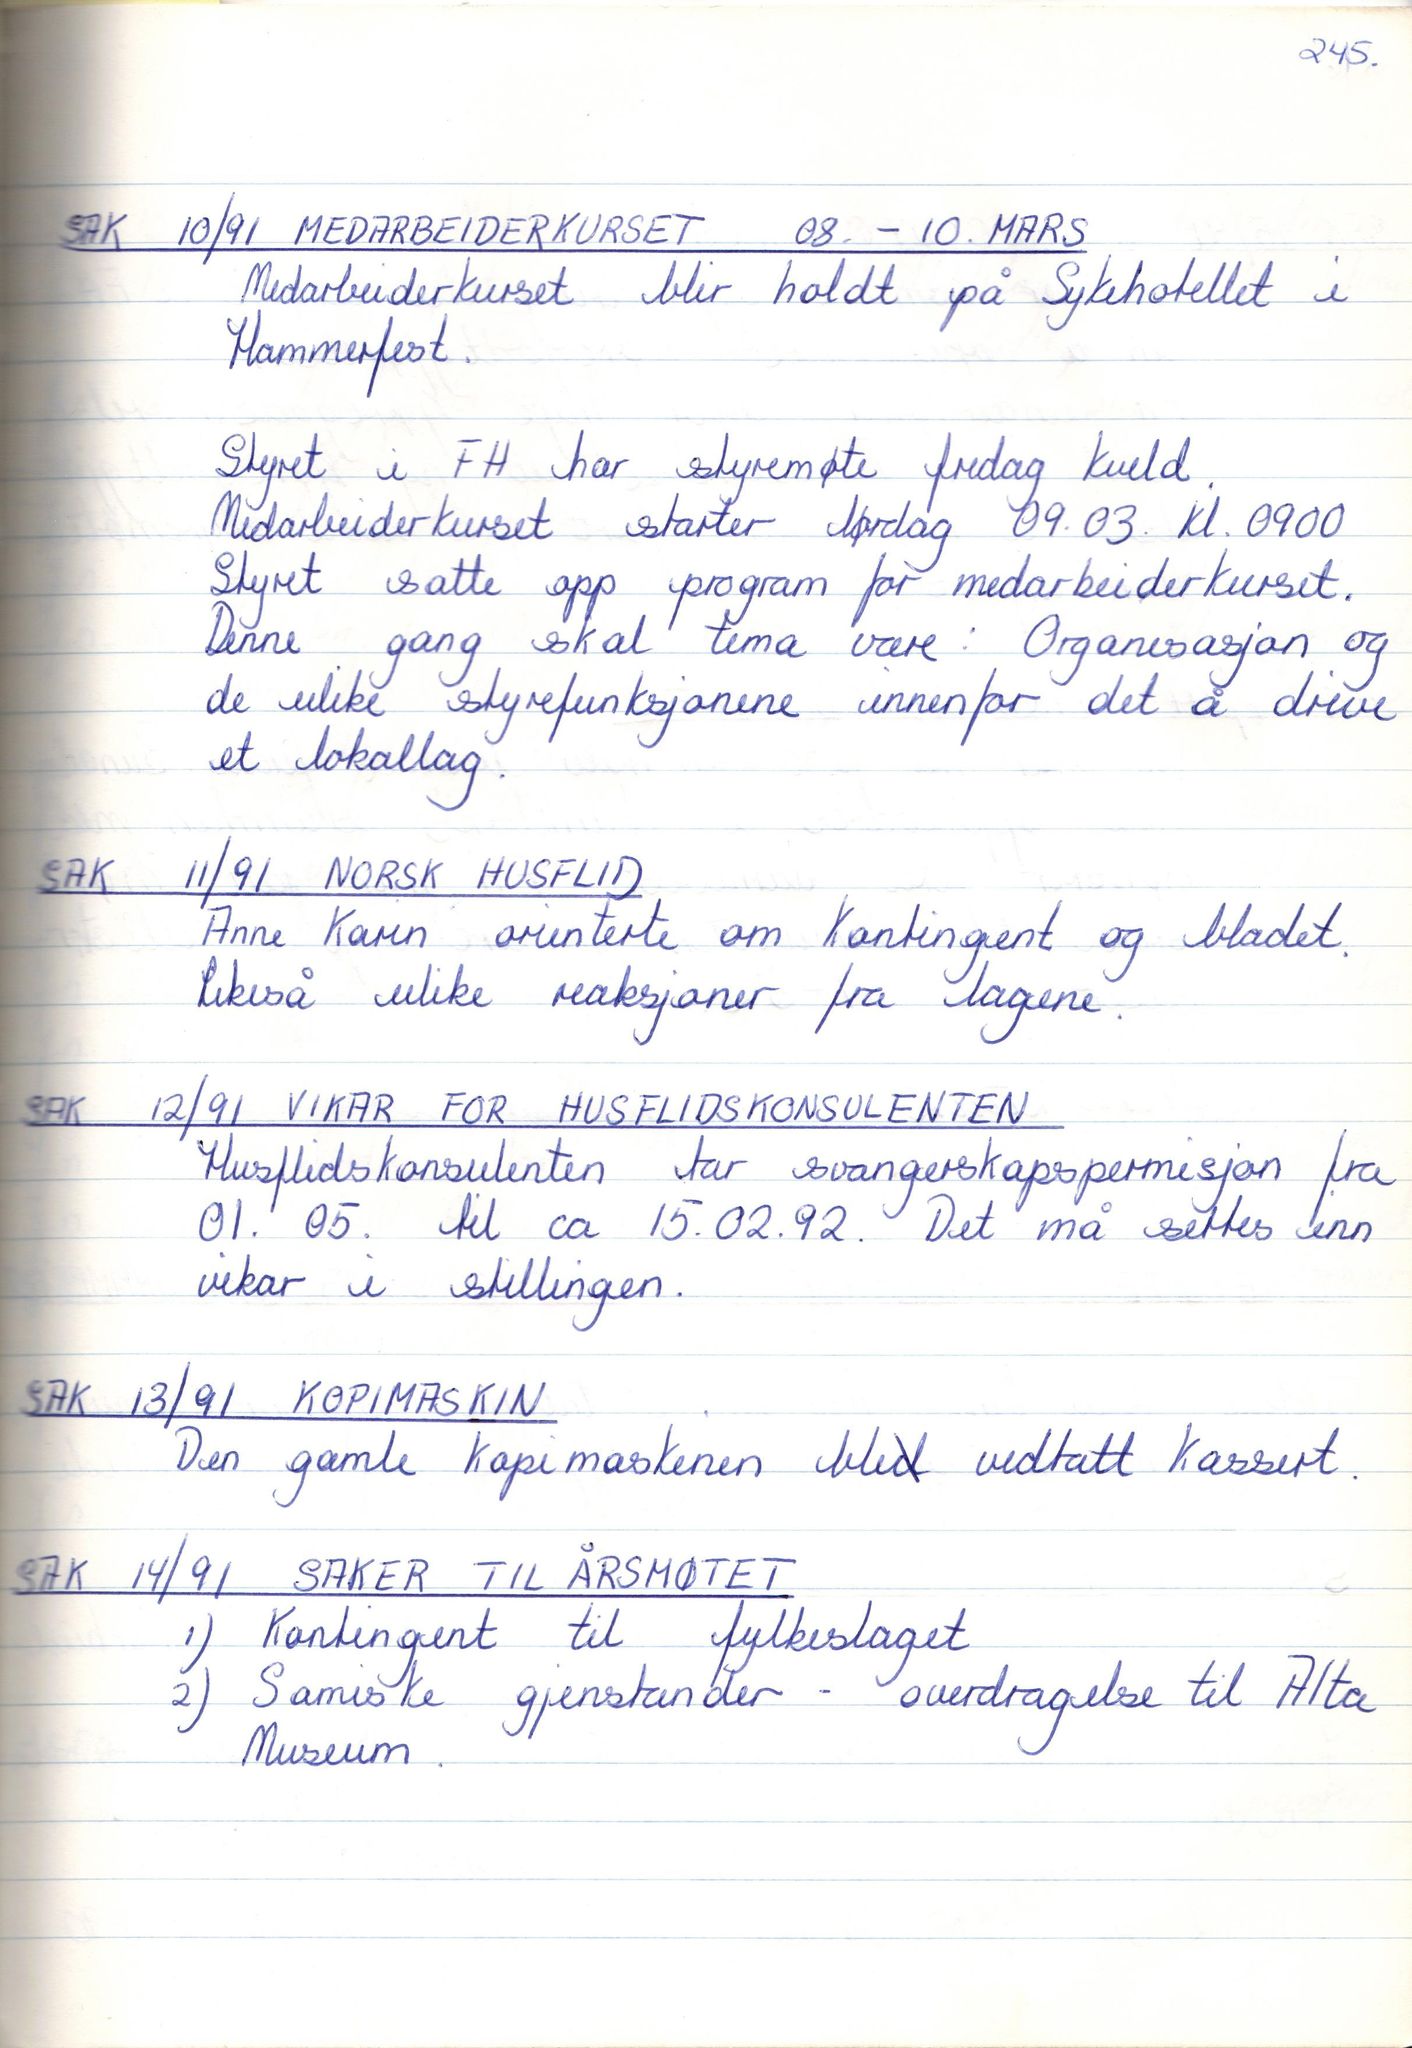 245.
SAK 10/91 MEDARBEIDERKURSET 08. - 10. MARS
Medarbeiderkurset blir holdt på Sykehotellet i
Hammerfest.
Styret i FH har styremøte fredag kveld.
Medarbeiderkurset starter lørdag 09.03. kl. 0900
Styret satte opp program for medarbeiderkurset.
Denne gang skal tema være: Organisasjon og
de ulike styrefunksjonene innenfor det å drive
et lokallag.
SAK 11/91 NORSK HUSFLID
Anne Karin orienterte om kontingent og bladet.
Likeså ulike reaksjoner fra lagene.
SAK 12/91 VIKAR FOR HUSFLIDSKONSULENTEN
Husflidskonsulenten tar svangerskapspermisjon fra
01. 05. til ca 15.02.92. Det må settes inn
vikar i stillingen.
SAK 13/91 KOPIMASKIN
Den gamle kopimaskinen ble vedtatt kassert.
SAK 14/91 SAKER TIL ÅRSMØTET
1) Kontingent til fylkeslaget
2) Samiske gjenstander - overdragelse til Alta
Museum.